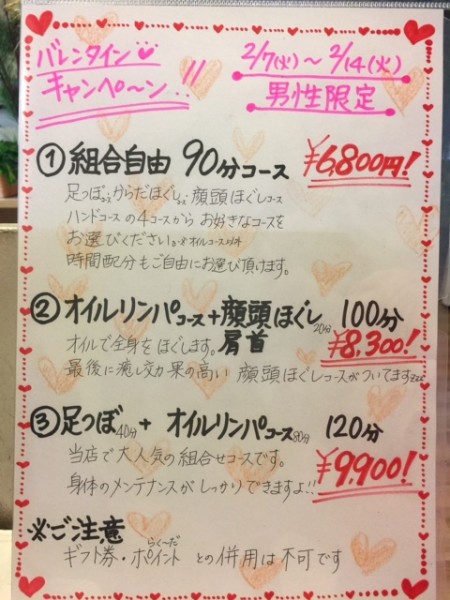 バレンタイン
キャンペ〜ン!!
2/7(火)〜2/14(火)
男性限定
①組合自由 90分コース ¥6,800円!
足つぼコース、からだほぐしコース、顔頭ほぐしコース
ハンドコースの4コースから お好きなコースを
お選びください
時間配分もご自由にお選び頂けます。
②オイルリンパコース+顔頭ほぐし20分 100分
肩首
¥8,300!
オイルで全身をほぐします。
最後に癒し効果の高い 顔頭ほぐしコースがついてますzzz
③足つぼ40分+オイルリンパコース80分 120分
当店で大人気の組合せコースです。
¥9,900!
身体のメンテナンスがしっかりできますよ!!
※ご注意
らく〜だ
ギフト券・ポイント との併用は不可です